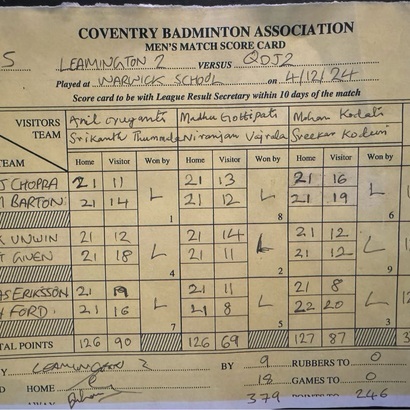 COVENTRY BADMINTON ASSOCIATION
MEN'S MATCH SCORE CARD
S LEAMINGTON 2 VERSUS QDJ2
Played at WARWICK SCHOOL on 4/12/24
Score card to be with League Result Secretary within 10 days of the match
VISITORS Anil Madhu Gottipati Mohan
TEAM Srikanth Niranjan Sreekar
TEAM Home Visitor Won by Home Visitor Won by Home Visitor Won by
J CHOPRA 21 11 21 13 21 16
BARTON 21 14 L 1 21 12 L 8 21 19 L 6
UNWIN 21 12 21 14 21 12
GIVEN 21 18 L 4 21 11 L 2 21 12 L 9
ERIKSSON 21 19 21 11 21 8
FORD 21 16 L 7 21 8 L 5 22 20 L 3
TAL POINTS 126 90 126 69 127 87
Y LEAMINGTON 2 BY 9 RUBBERS TO 0
D HOME 18 GAMES TO 0
379 POINTS TO 246